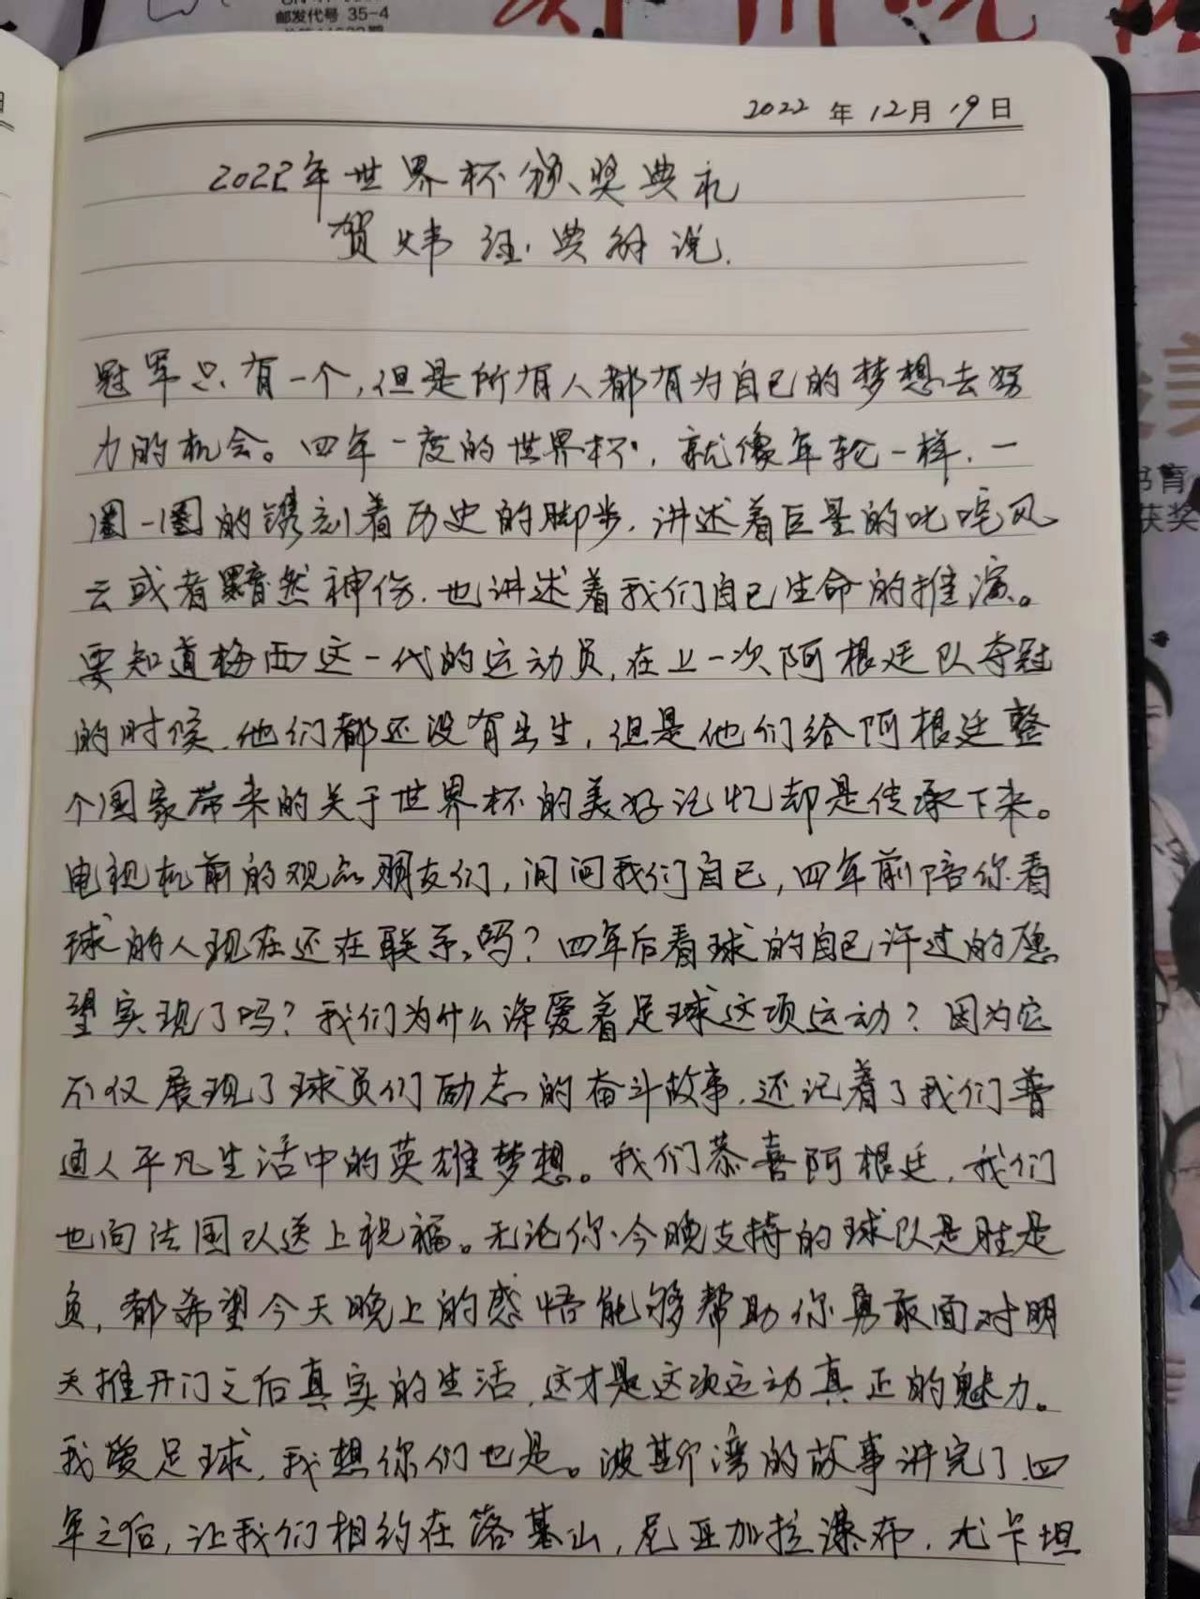 邮发代号 35-4
2022年12月19日
2022年世界杯颁奖典礼
贺炜经典解说.
冠军只有一个,但是所有人都有为自己的梦想去努
力的机会。四年一度的世界杯,就像年轮一样,一
圈一圈的镌刻着历史的脚步,讲述着巨星的叱咤风
云或者黯然神伤,也讲述着我们自己生命的推演。
要知道梅西这一代的运动员,在上一次阿根廷队夺冠
的时候,他们都还没有出生,但是他们给阿根廷整
个国家带来的关于世界杯的美好记忆却是传承下来。
电视机前的观众朋友们,问问我们自己,四年前陪你看
球的人现在还在联系吗?四年后看球的自己许过的愿
望实现了吗?我们为什么深爱着足球这项运动?因为它
不仅展现了球员们励志的奋斗故事,还记着了我们普
通人平凡生活中的英雄梦想。我们恭喜阿根廷,我们
也向法国队送上祝福。无论你今晚支持的球队是胜是
负,都希望今天晚上的感悟能够帮助你勇敢面对明
天推开门之后真实的生活,这才是这项运动真正的魅力。
我爱足球,我想你们也是。波斯湾的故事讲完了,四
年之后,让我们相约在落基山,尼亚加拉瀑布,尤卡坦
书育
获奖